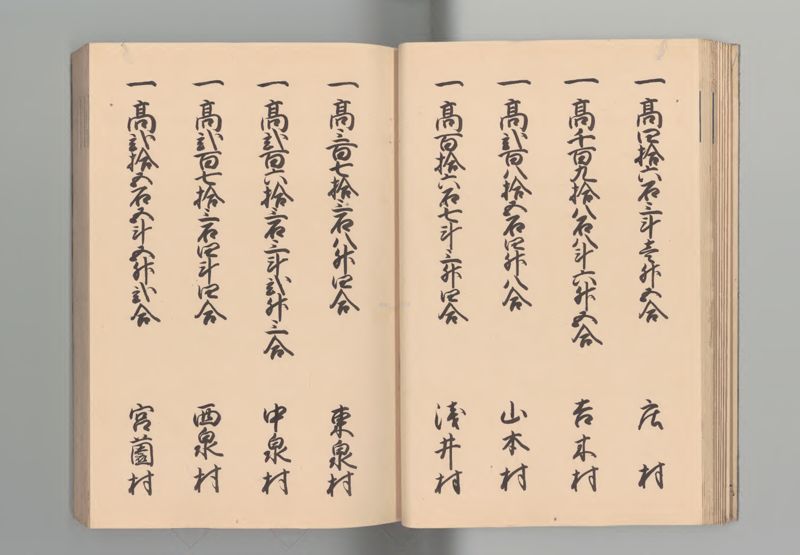 一高四拾六石三斗壱升五合 庄村
一高千百九拾八石八斗六升五合 吉木村
一高弐百八拾五石四升八合 山本村
一高百拾六石七斗三升四合 浅井村
一高三百七拾三石八升四合 東泉村
一高弐百六拾三石三斗弐升三合 中泉村
一高弐百七拾三石四斗四合 西泉村
一高弐拾五石五斗五升弐合 宮薗村